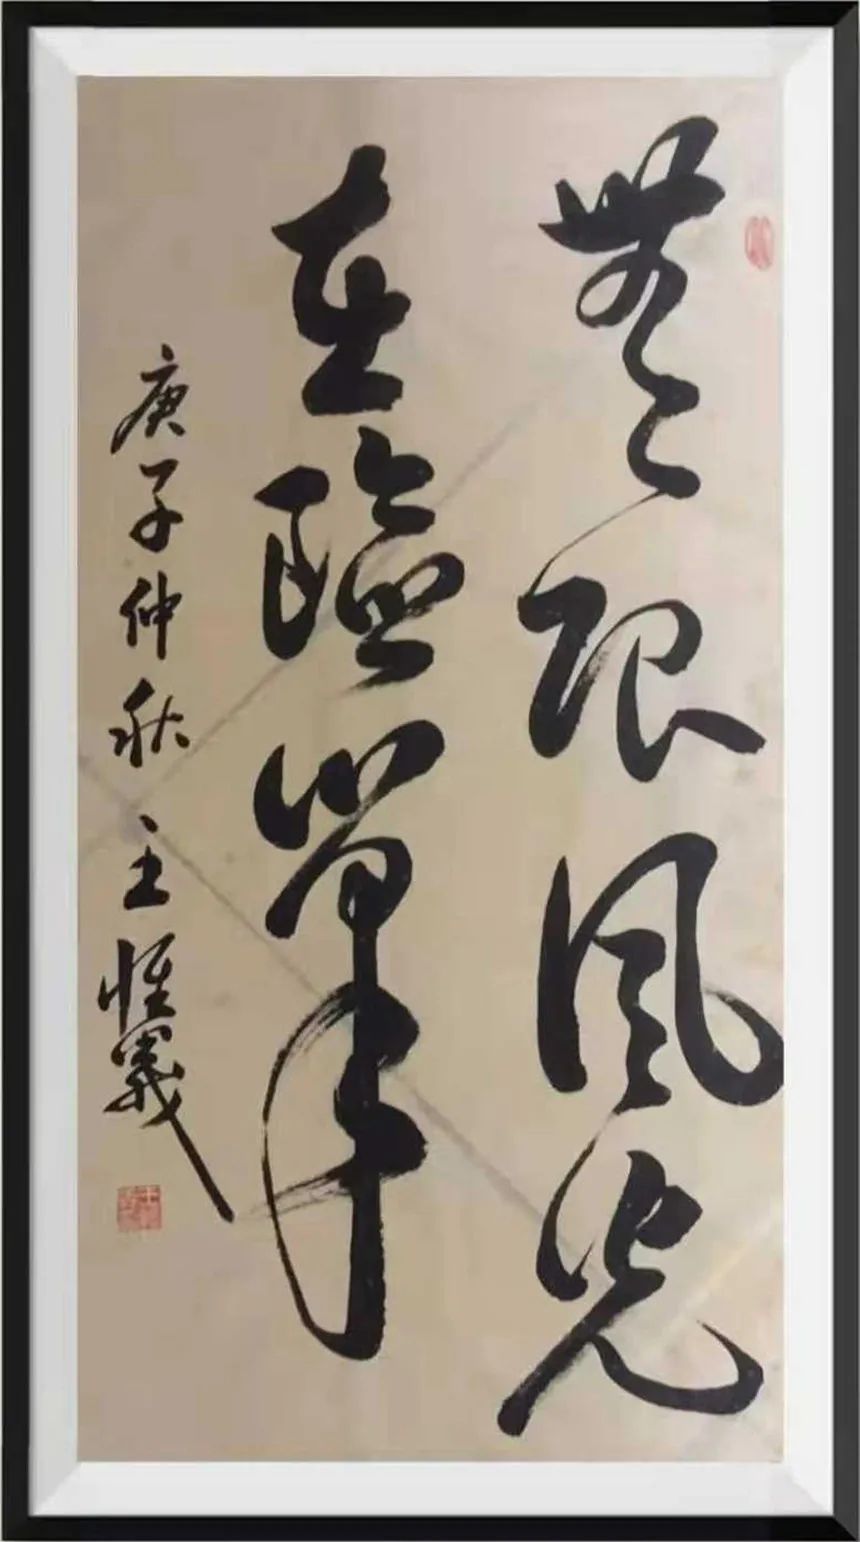 無限風光
在險峯
庚子仲秋 王惟義